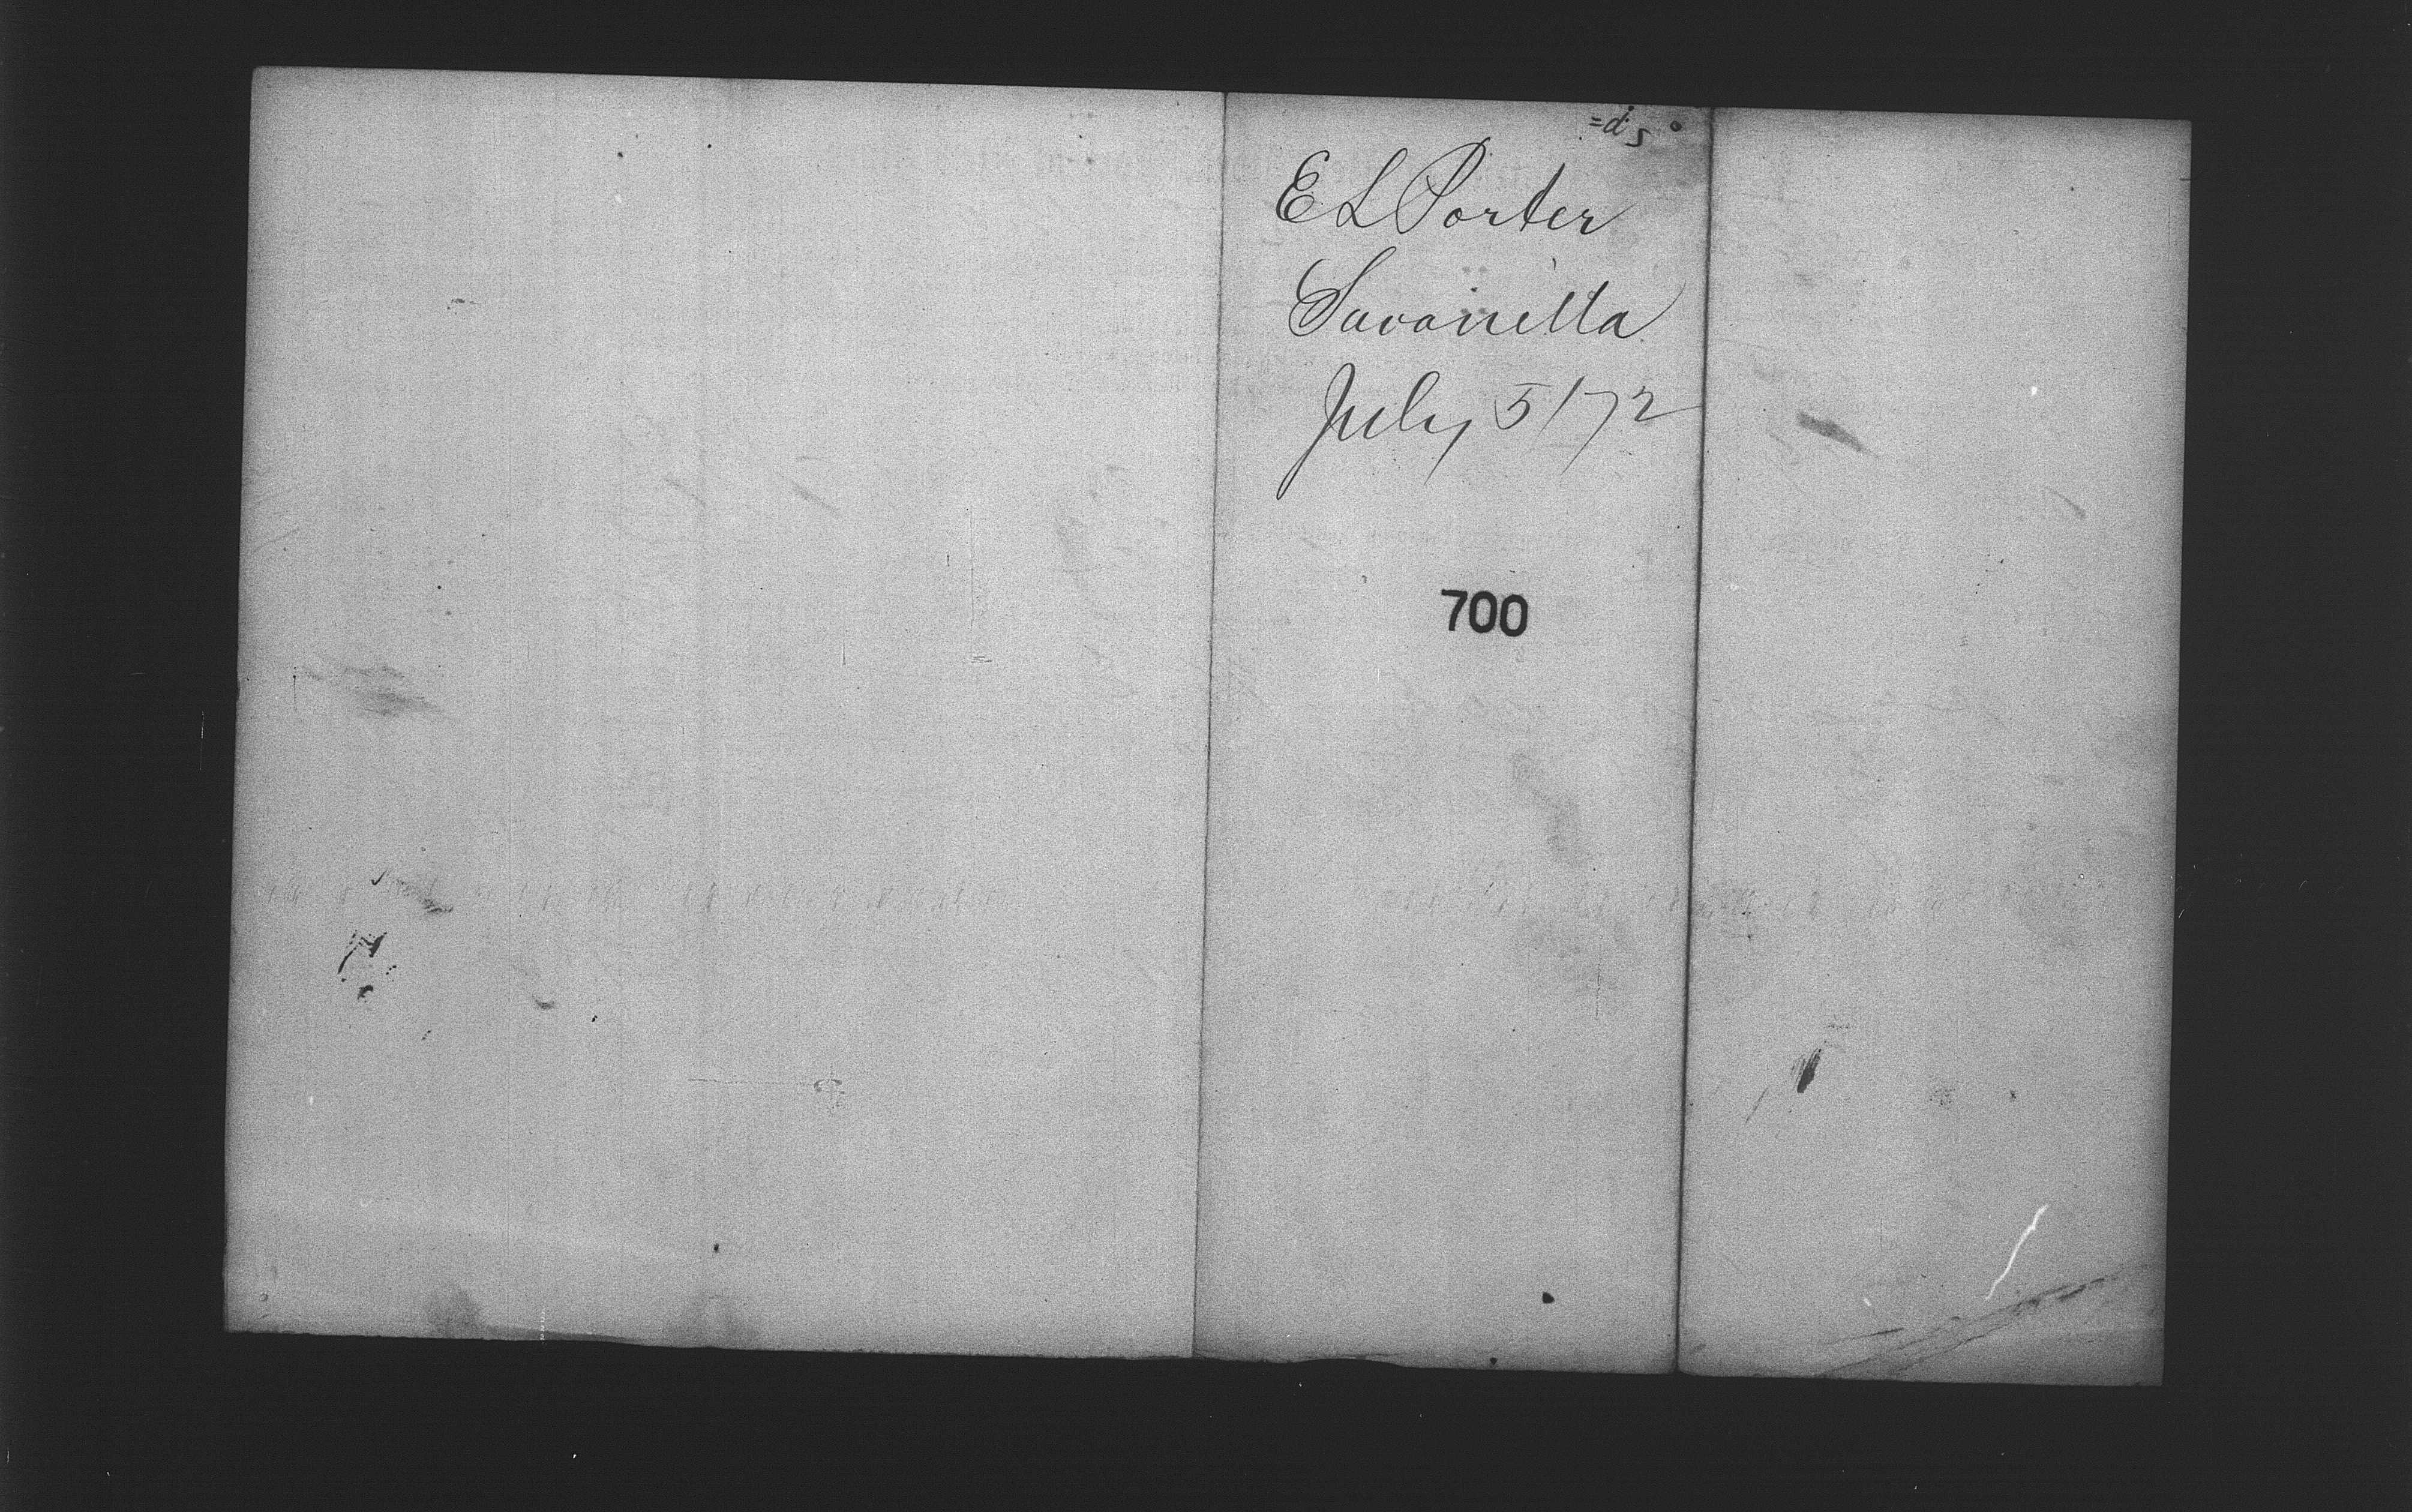 E L Porter
Savanilla
July 5/72
700